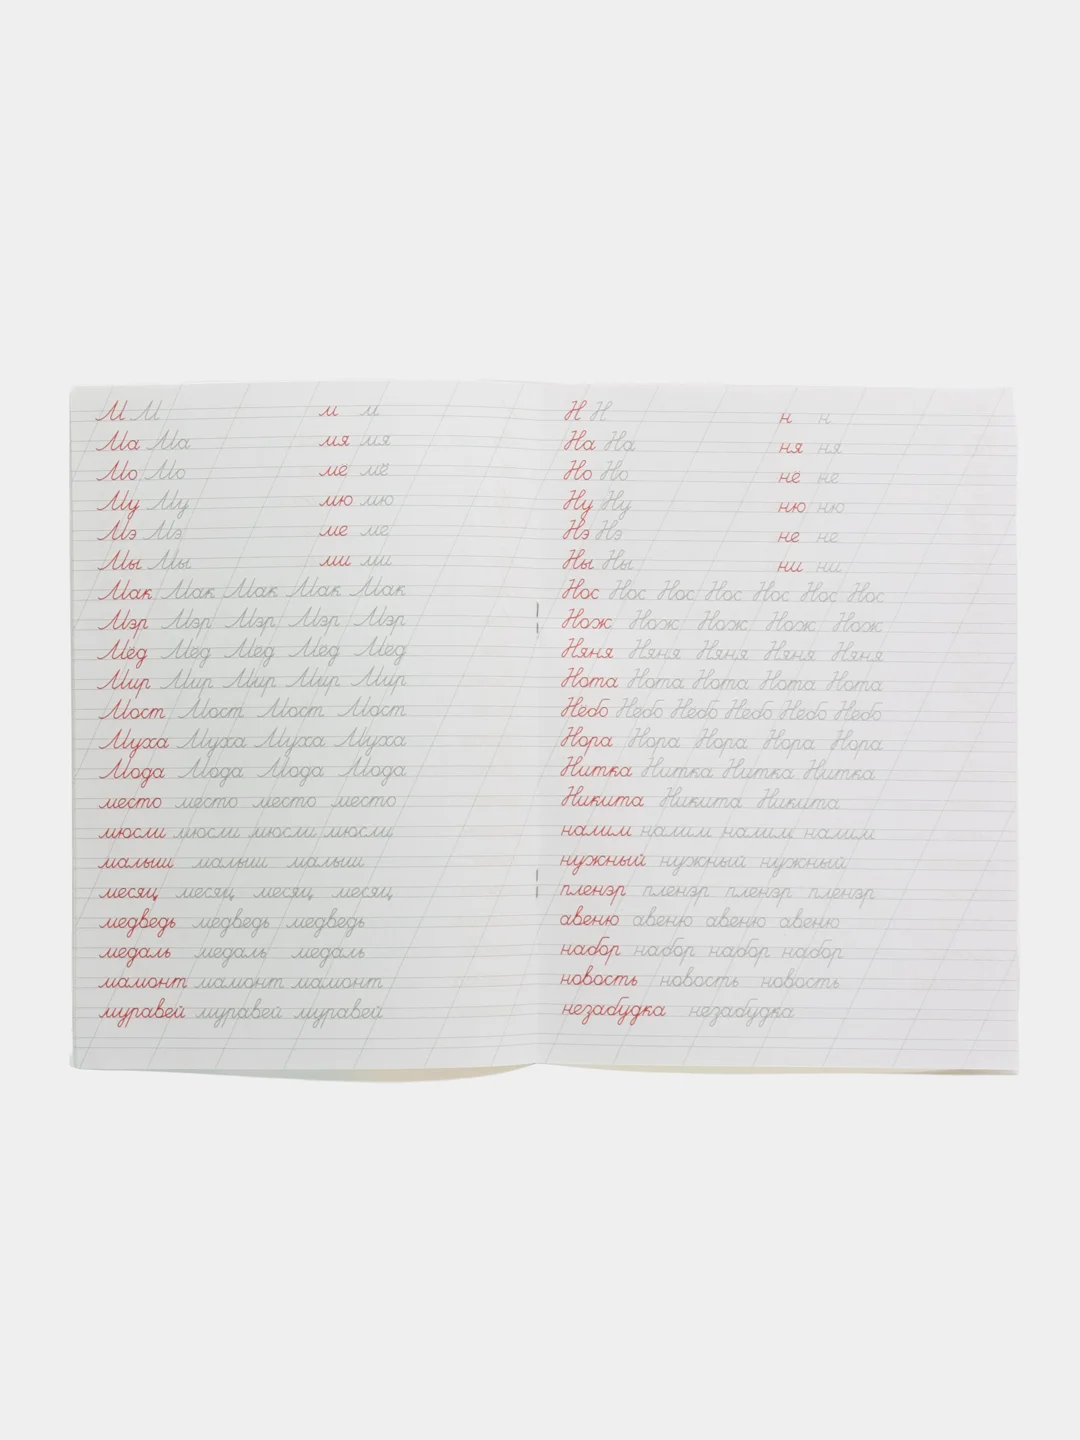 М М м м
Ма Ма мя мя
Мо Мо мё мё
Му Му мю мю
Мэ Мэ ме ме
Мы Мы ми ми
Мак Мак Мак Мак Мак
Мэр Мэр Мэр Мэр Мэр
Мёд Мёд Мёд Мёд Мёд
Мир Мир Мир Мир Мир
Мост Мост Мост Мост
Муха Муха Муха Муха
Мода Мода Мода Мода
место место место место
мюсли мюсли мюсли мюсли
малыш малыш малыш
месяц месяц месяц месяц
медведь медведь медведь
медаль медаль медаль
мамонт мамонт мамонт
муравей муравей муравей
Н Н н н
На На ня ня
Но Но нё нё
Ну Ну ню ню
Нэ Нэ не не
Ны Ны ни ни
Нос Нос Нос Нос Нос Нос Нос
Нож Нож Нож Нож Нож
Няня Няня Няня Няня Няня
Нота Нота Нота Нота Нота
Небо Небо Небо Небо Небо Небо
Нора Нора Нора Нора Нора
Нитка Нитка Нитка Нитка
Никита Никита Никита
налим налим налим налим
нужный нужный нужный
пленэр пленэр пленэр пленэр
авеню авеню авеню авеню
набор набор набор набор
новость новость новость
незабудка незабудка